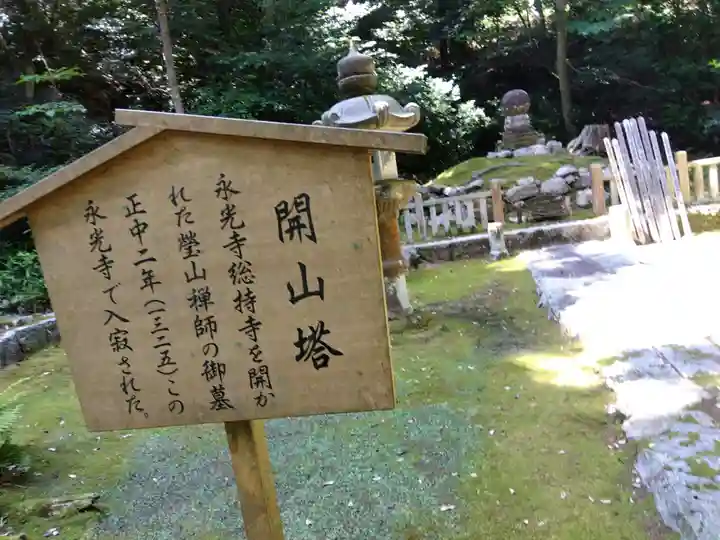 開山塔
永光寺総持寺を開か
れた瑩山禅師の御墓
正中二年(一三二五)この
永光寺で入寂された。